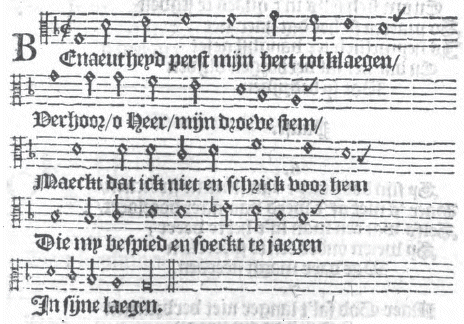 Benaeutheyd perst mijn hert tot klaegen/
Verhoor/o Heer/mijn droeve stem/
Maeckt dat ick niet en schrick voor hem
Die my bespied en soeckt te jaegen
In sijne laegen.